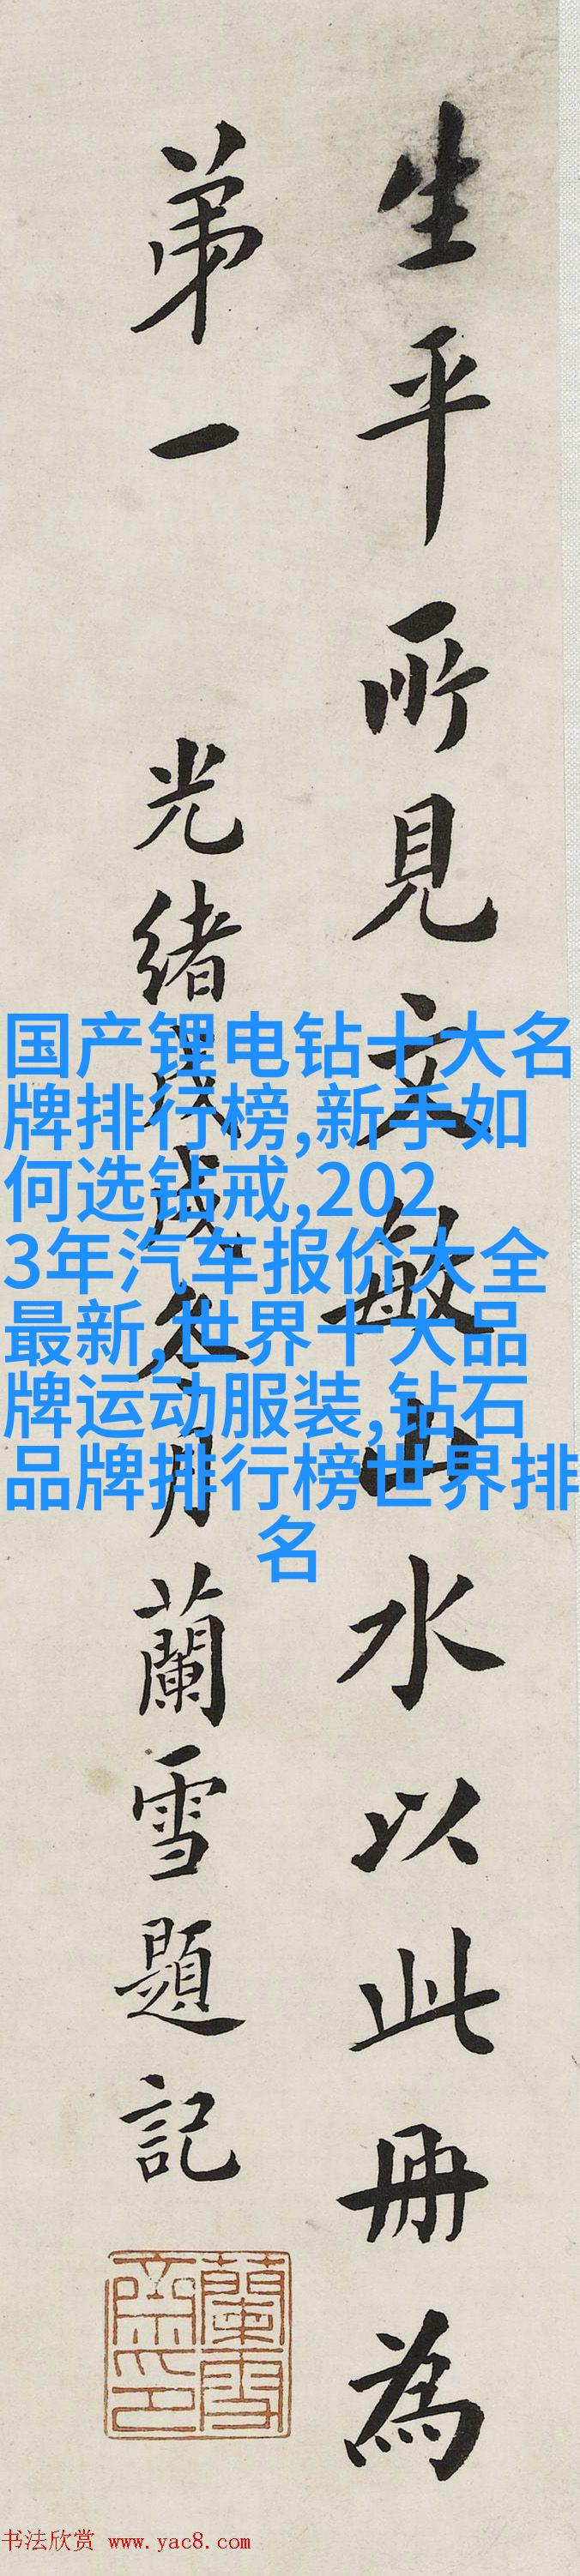 生平所見文敏山水以此册為
弟一
光緒戊戌冬月蘭雪題記
国产锂电钻十大名
牌排行榜,新手如
何选钻戒,202
3年汽车报价大全
最新,世界十大品
牌运动服装,钻石
品牌排行榜世界排
名
蘭雪
齋印
书法欣赏 www.yac8.com